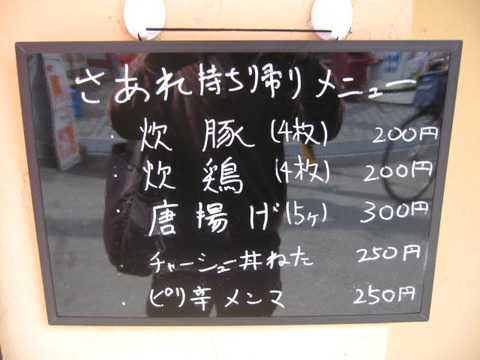 さあれ持ち帰りメニュー
・炊豚(4枚) 200円
・炊鶏(4枚) 200円
・唐揚げ(5ヶ) 300円
・チャーシュー丼ねた 250円
・ピリ辛メンマ 250円